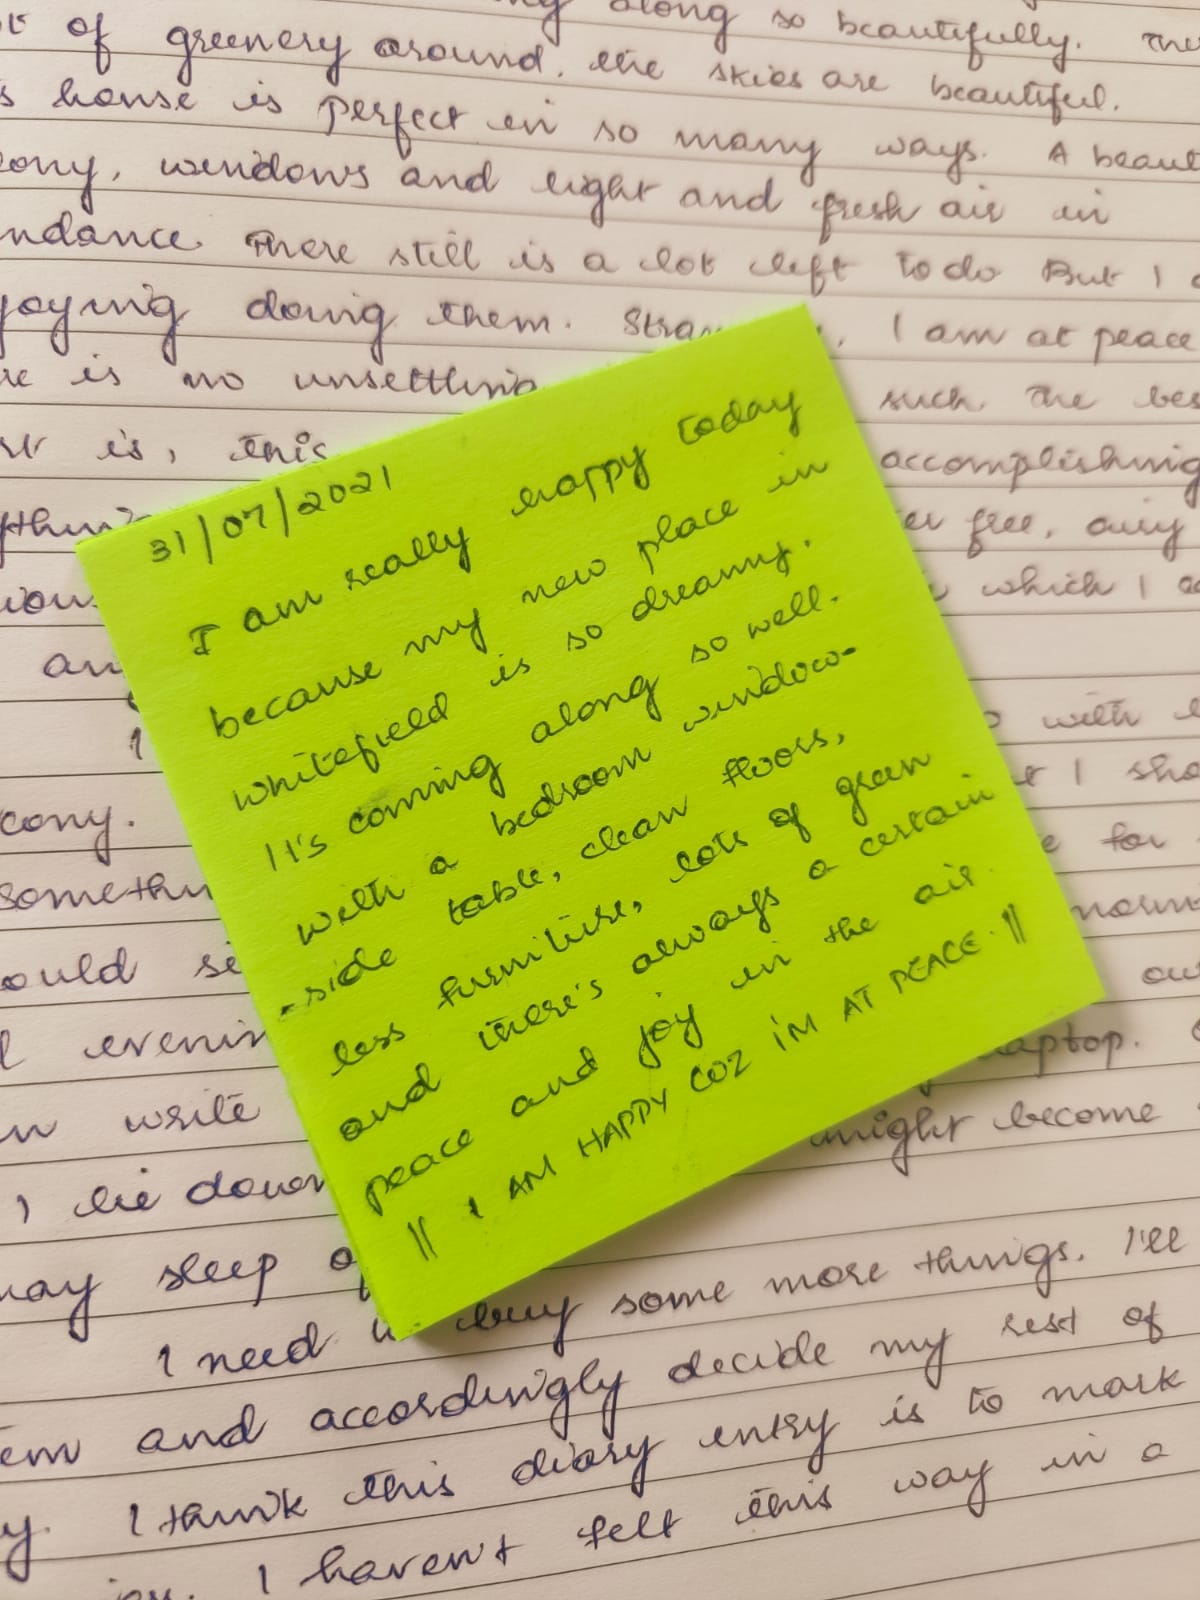 along so beautifully.
of greenery around. the skies are beautiful.
house is perfect in so many ways. A beaut
ony, windows and light and fresh air in
ndance. There still is a lot left to do But I
joying doing them. Stran , I am at peace
re is no unsettling such. The bes
is, this accomplishing
thin er free, airy
ious which I
an
I with
cony. I sho
somethi e for
ould si norm
l evenin ou
n write laptop.
I lie down might become
may sleep o
I need buy some more things. I'll
em and accordingly decide my rest of
y. I think this diary entry is to mark
I haven't felt this way in a
31/07/2021
I am really happy today
because my new place in
whitefield is so dreamy.
It's coming along so well.
with a bedroom window-
-side table, clean floors,
less furniture, lots of green
and there's always a certain
peace and joy in the air.
|| I AM HAPPY COZ I'M AT PEACE. ||